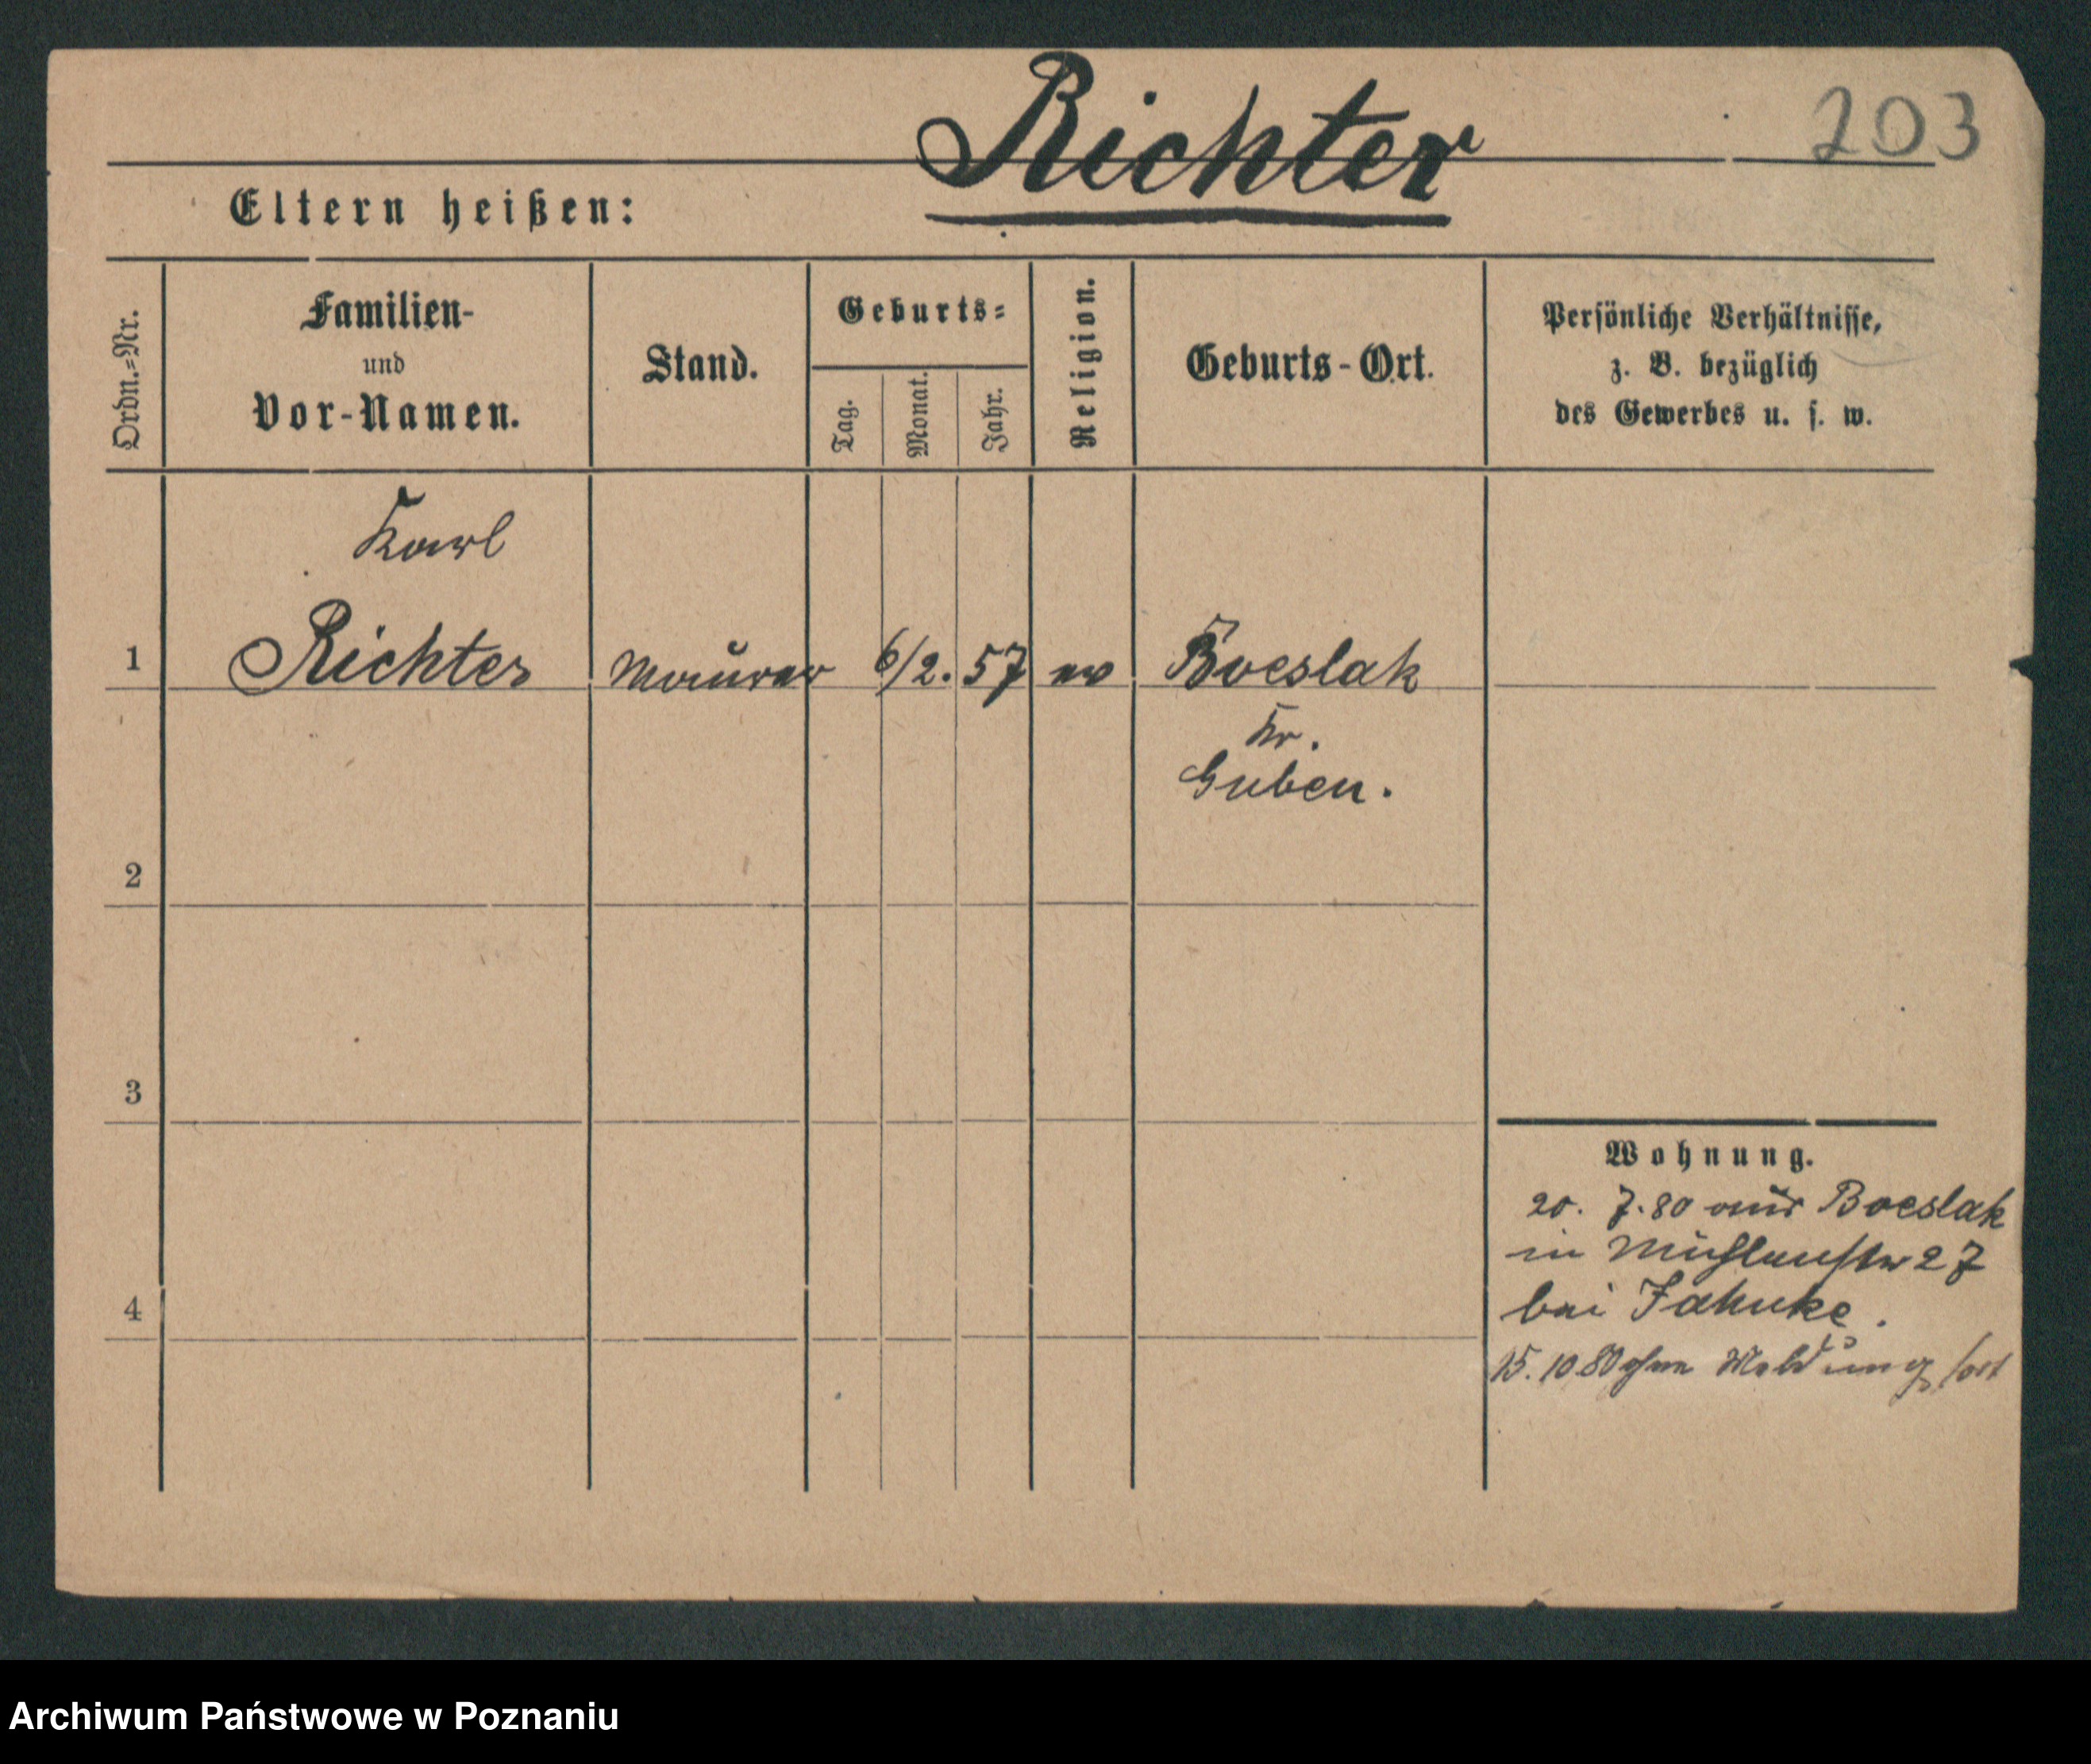 Richter
203
Eltern heißen:
Ordn.=Nr.
Familien-
und
Vor-Namen.
Stand.
Geburts=
Tag.
Monat.
Jahr.
Religion.
Geburts-Ort.
Persönliche Verhältnisse,
z. B. bezüglich
des Gewerbes u. s. w.
Karl
1 Richter Maurer 6/2. 57 ev Boeslak
Kr.
Guben.
2
3
Wohnung.
20. 7. 80 aus Boeslak
in Mühlenstr 27
bei Jahnke.
4
15. 10 80 ohne Meldung fort
Archiwum Państwowe w Poznaniu